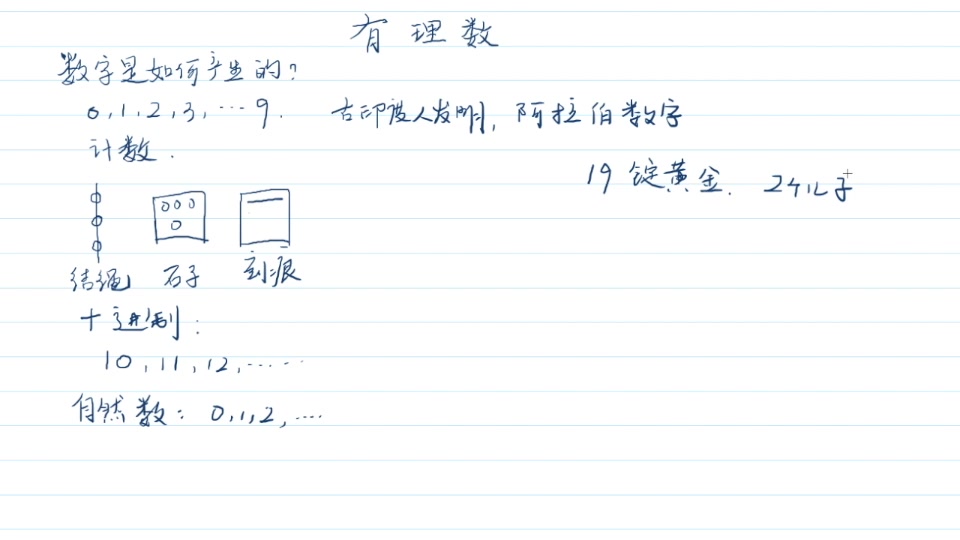 有理数
数字是如何产生的?
0,1,2,3,…9. 古印度人发明, 阿拉伯数字
计数.
19锭黄金. 2个儿子
结绳 石子 刻痕
十进制:
10,11,12,……
自然数: 0,1,2,…